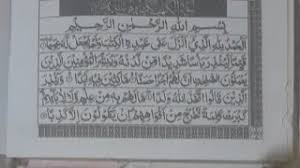 بِسْمِ اللّٰهِ الرَّحْمٰنِ الرَّحِيْمِ
اَلْحَمْدُ لِلّٰهِ الَّذِيْٓ اَنْزَلَ عَلٰى عَبْدِهِ الْكِتٰبَ وَلَمْ يَجْعَلْ لَّهٗ عِوَجًا
قَيِّمًا لِّيُنْذِرَ بَاْسًا شَدِيْدًا مِّنْ لَّدُنْهُ وَيُبَشِّرَ الْمُؤْمِنِيْنَ الَّذِيْنَ
يَعْمَلُوْنَ الصّٰلِحٰتِ اَنَّ لَهُمْ اَجْرًا حَسَنًا مَّاكِثِيْنَ فِيْهِ اَبَدًا وَّيُنْذِرَ
الَّذِيْنَ قَالُوا اتَّخَذَ اللّٰهُ وَلَدًا مَا لَهُمْ بِهٖ مِنْ عِلْمٍ وَّلَا لِاٰبَآئِهِمْ
كَبُرَتْ كَلِمَةً تَخْرُجُ مِنْ اَفْوَاهِهِمْ اِنْ يَّقُوْلُوْنَ اِلَّا كَذِبًا